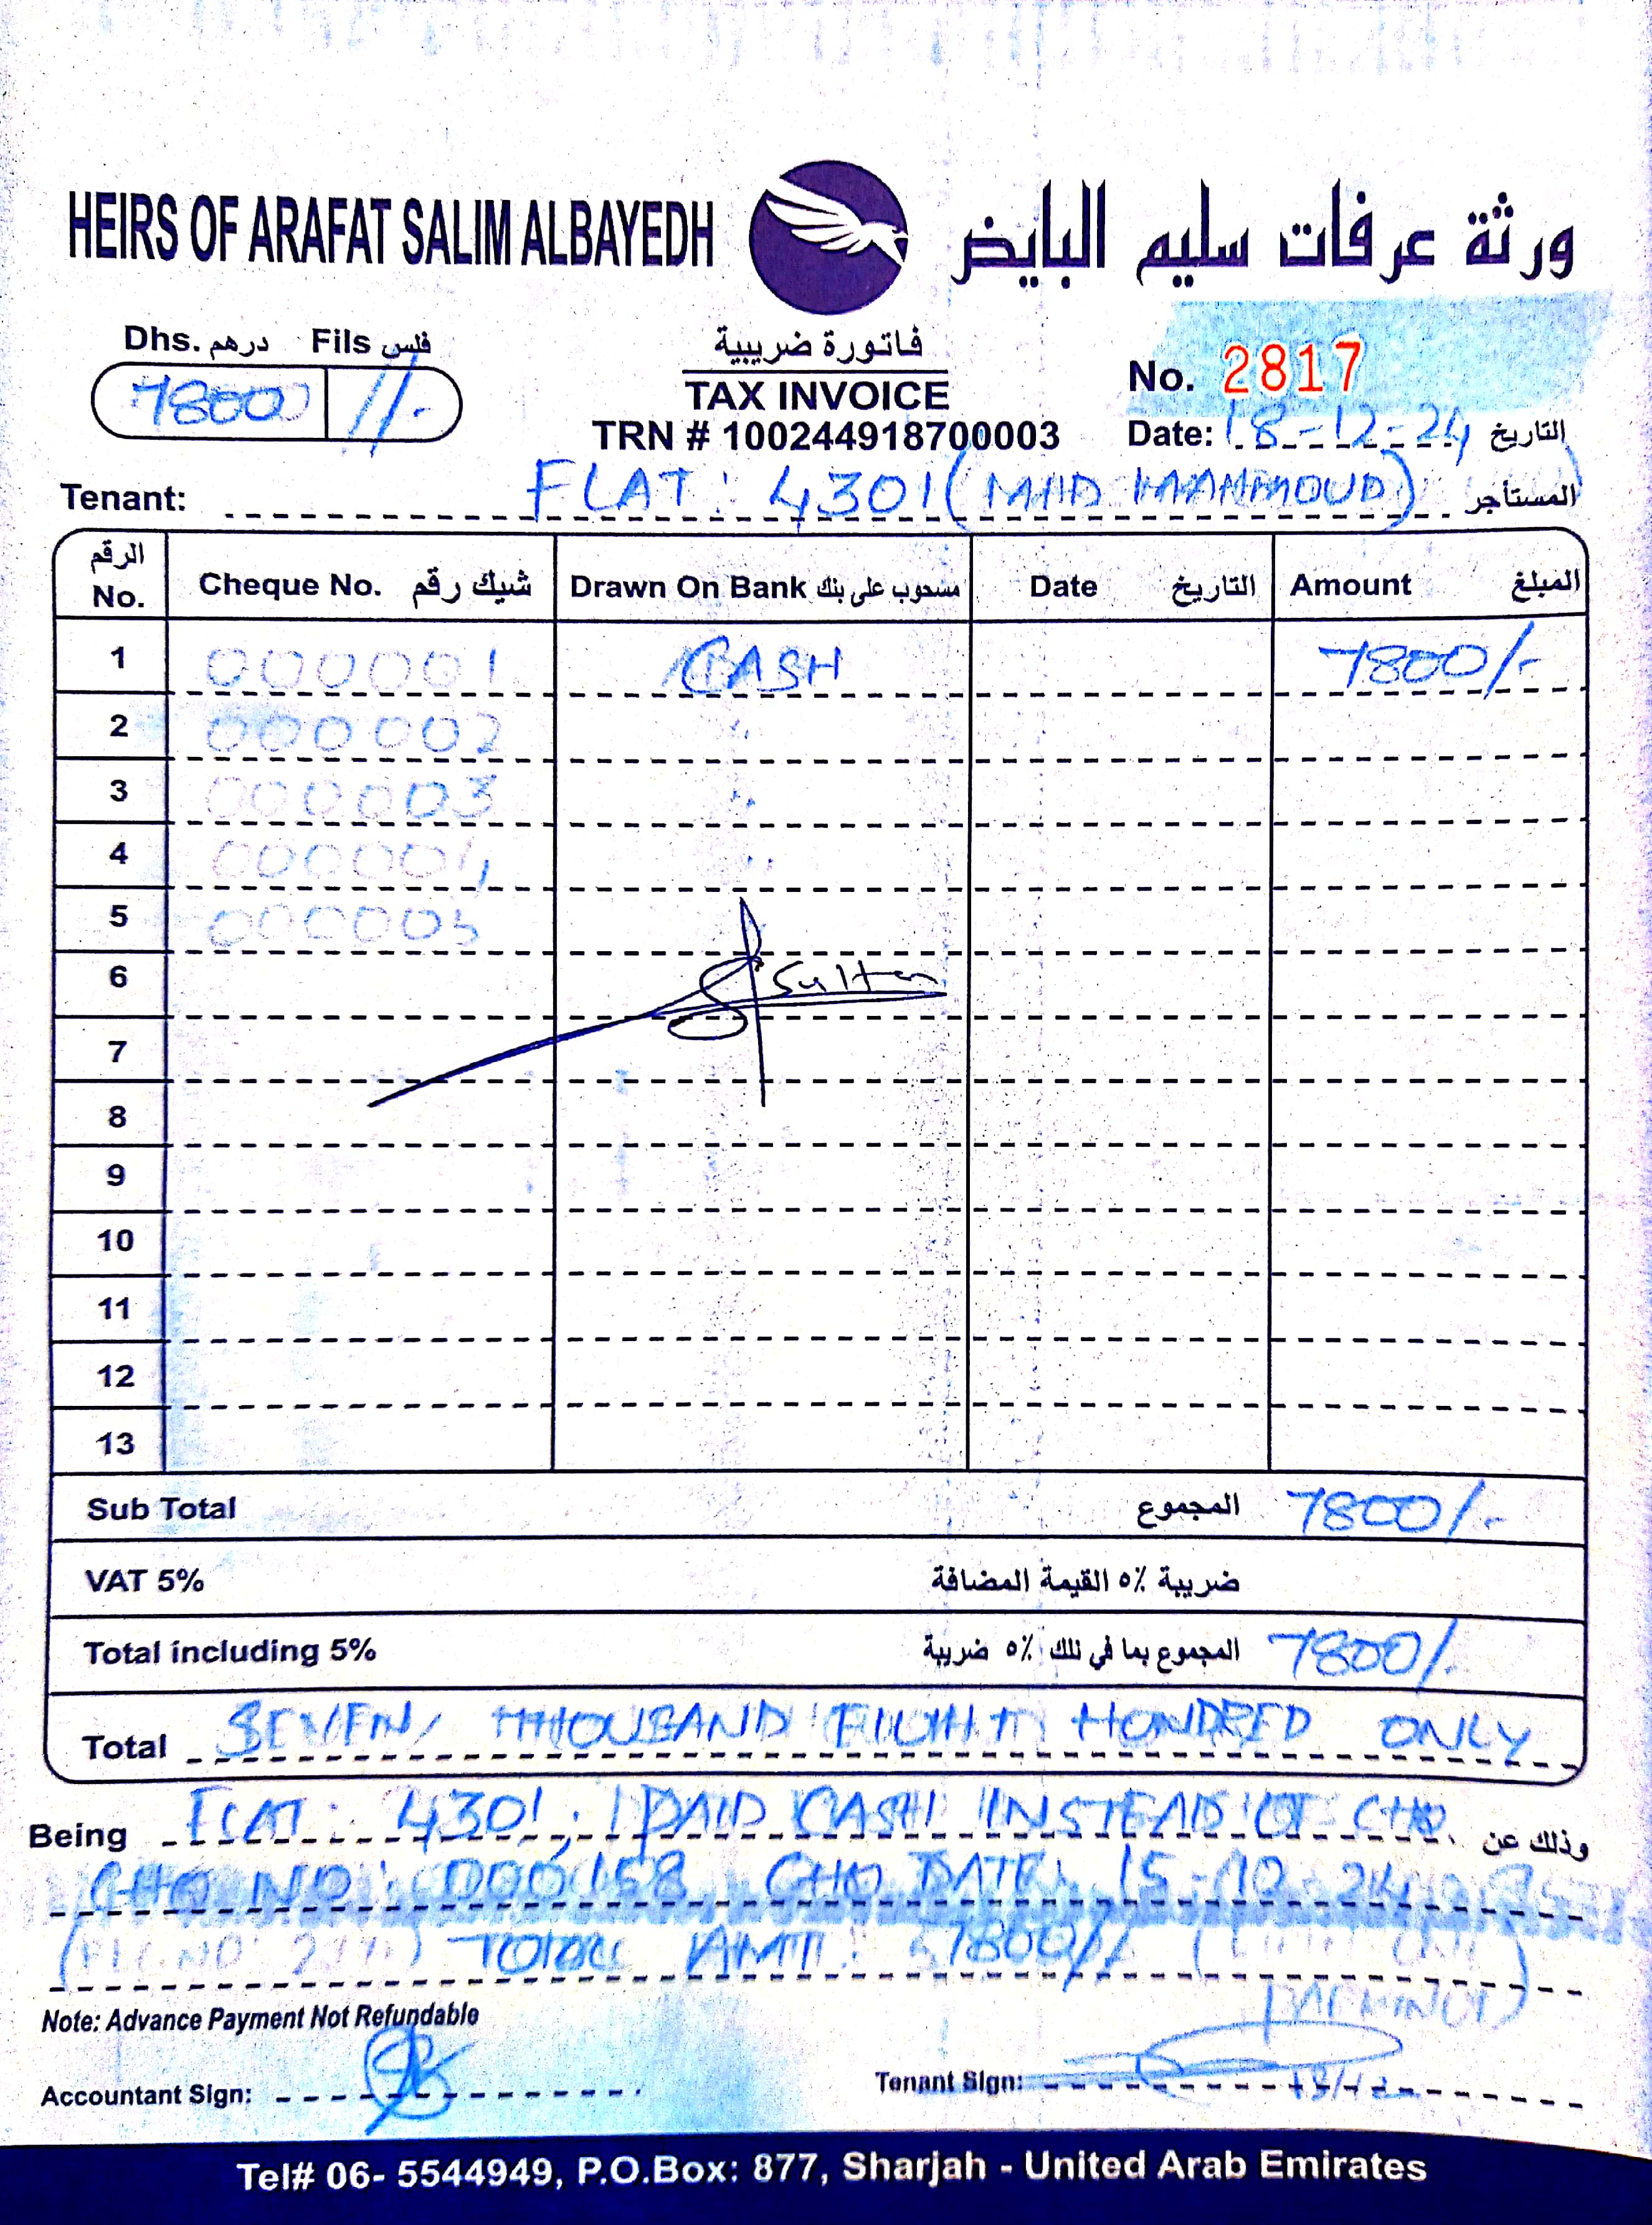 HEIRS OF ARAFAT SALIM ALBAYEDH
ورثة عرفات سليم البايض
Dhs. درهم Fils فلس
7800 //-
فاتورة ضريبية
TAX INVOICE
TRN # 100244918700003
No. 2817
Date: 18-12-24 التاريخ
Tenant: FLAT: 4301 (MHD MAHMOUD) المستأجر
الرقم No. Cheque No. شيك رقم Drawn On Bank مسحوب على بنك Date التاريخ Amount المبلغ
1 000001 CASH 7800/-
2 000002 "
3 000003 "
4 000004 "
5 000005
6 Sultan
7
8
9
10
11
12
13
Sub Total المجموع 7800/-
VAT 5% ضريبة ٥٪ القيمة المضافة
Total including 5% المجموع بما في ذلك ٥٪ ضريبة 7800/-
Total SEVEN THOUSAND EIGHT HUNDRED ONLY
Being FLAT: 4301, PAID CASH INSTEAD OF CHQ وذلك عن
CHQ NO: 000158 CHQ DATE: 15-10-24
TOTAL AMT: 7800//
Note: Advance Payment Not Refundable
Accountant Sign:
Tenant Sign:
Tel# 06- 5544949, P.O.Box: 877, Sharjah - United Arab Emirates